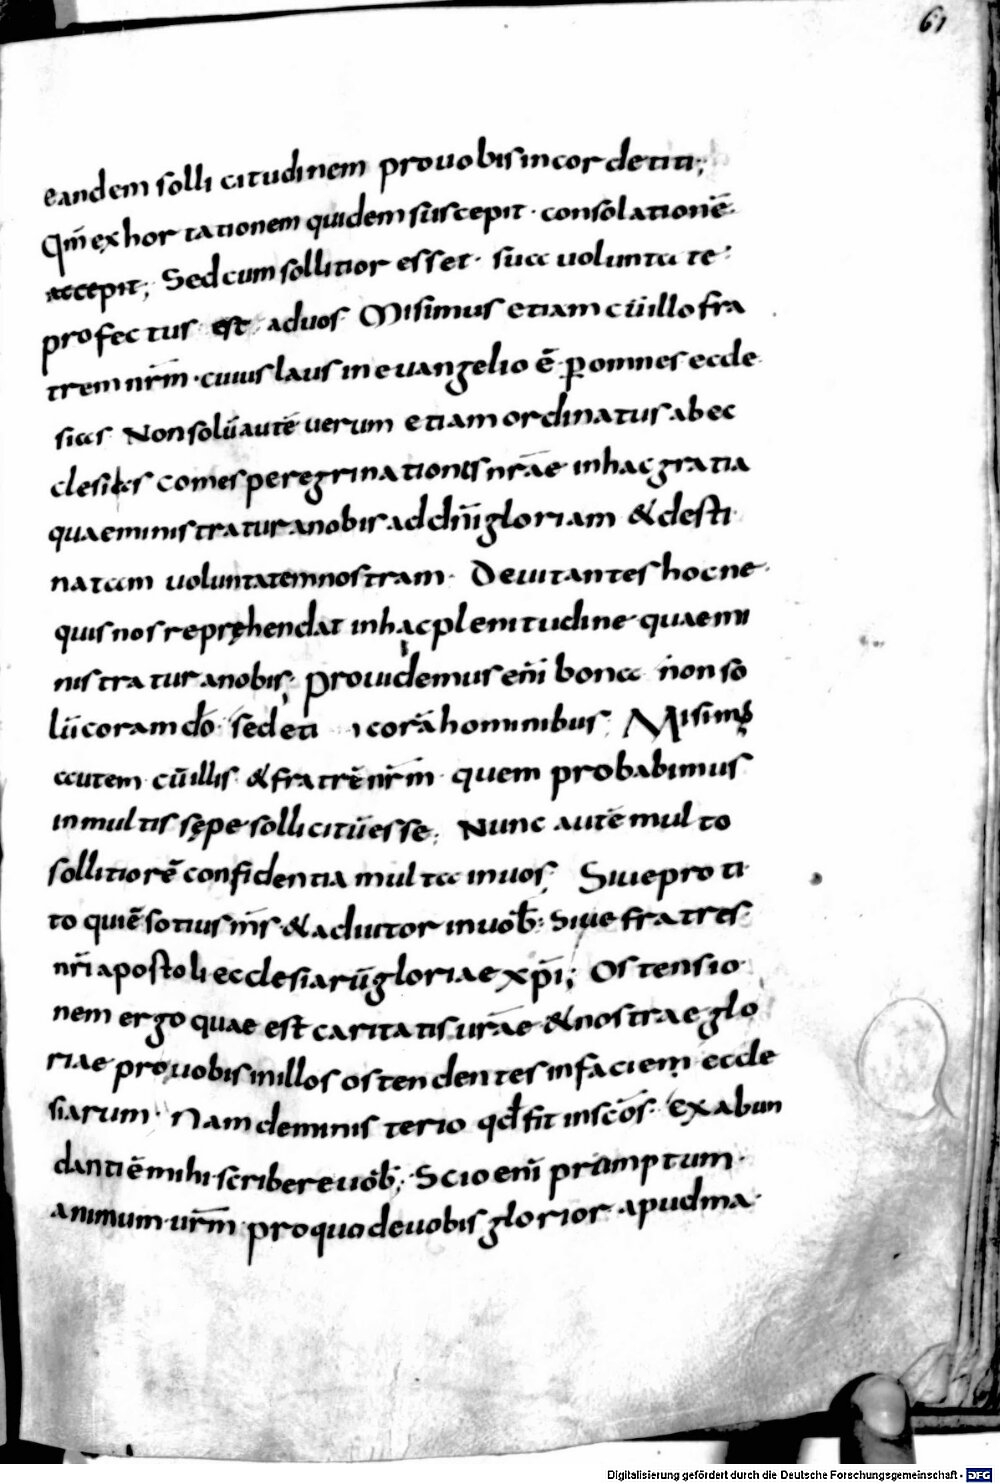 61
eandem sollicitudinem pro uobis in corde titi;
Qm̄ exhortationem quidem suscepit · consolationē
accepit; Sed cum sollitior esset · sua uoluntate
profectus est ad uos Misimus etiam cū illo fra
trem nr̄m · cuius laus in euangelio ē per omnes eccle
sias Non solū autē uerum etiam ordinatus ab ec
clesiis comes peregrinationis nr̄ae in hac gratia
quae ministratur a nobis ad dn̄i gloriam & desti
natam uoluntatem nostram · Deuitantes hoc ne
quis nos repręhendat in hac plenitudine quae mi
nistratur a nobis; prouidemus eni̅ bona non so
lū coram dō sed eti corā hominibus; Misim;
autem cū illis & fratrē nr̄m quem probabimus
in multis sępe sollicitū esse; Nunc autē multo
sollitiorē confidentia multa in uos; Siue pro ti
to qui ē sotius m̄s & adiutor in uob̄; Siue fratres
nr̄i apostoli ecclesiarū gloriae xp̄i; Ostensio
nem ergo quae est caritatis ur̄ae & nostrae glo
riae pro uobis in illos ostendentes in faciem eccle
siarum · Nam de ministerio qd̄ fit in sc̄os · Ex abun
danti ē mihi scribere uob̄; Scio eni̅ promptum
animum ur̄m pro quo de uobis glorior apud ma
Digitalisierung gefördert durch die Deutsche Forschungsgemeinschaft - DFG